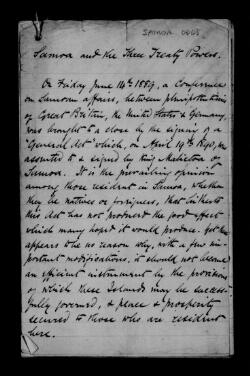 SAMOA 0003
Samoa and the Three Treaty Powers.
On Friday June 14th 1889, a Conference
on Samoan affairs, between plenipotentiaries
of Great Britain, the United States & Germany,
was brought to a close by the signing of a
"General Act" which, on April 19th 1890, was
assented to & signed by King Malietoa of
Samoa. It is the prevailing opinion
among those resident in Samoa, whether
they be natives or foreigners, that hitherto
this Act has not produced the good effect
which many hoped it would produce. Yet there
appears to be no reason why, with a few im-
portant modifications, it should not become
an efficient instrument by the provisions
of which these Islands may be success-
fully governed, & peace & prosperity
secured to those who are resident
here.